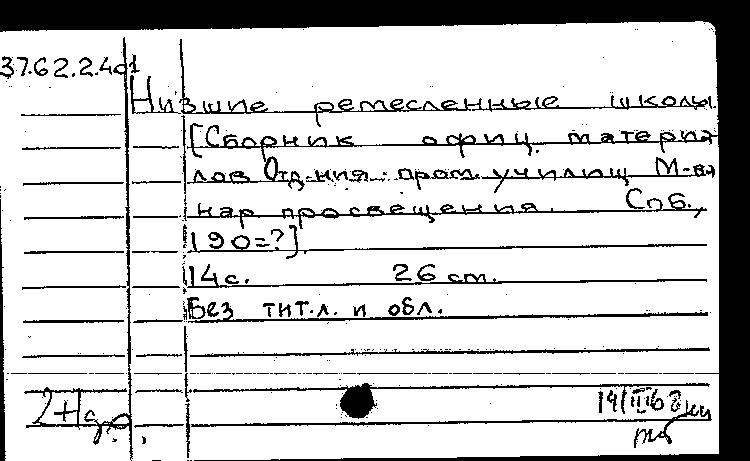 37.62.2.401
Низшие ремесленные школы
[Сборник офиц. материа-
лов Отд-ния пром. училищ М-ва
нар просвещения. Спб.,
190=?].
14 с. 26 см.
Без тит. л. и обл.
19/III 68